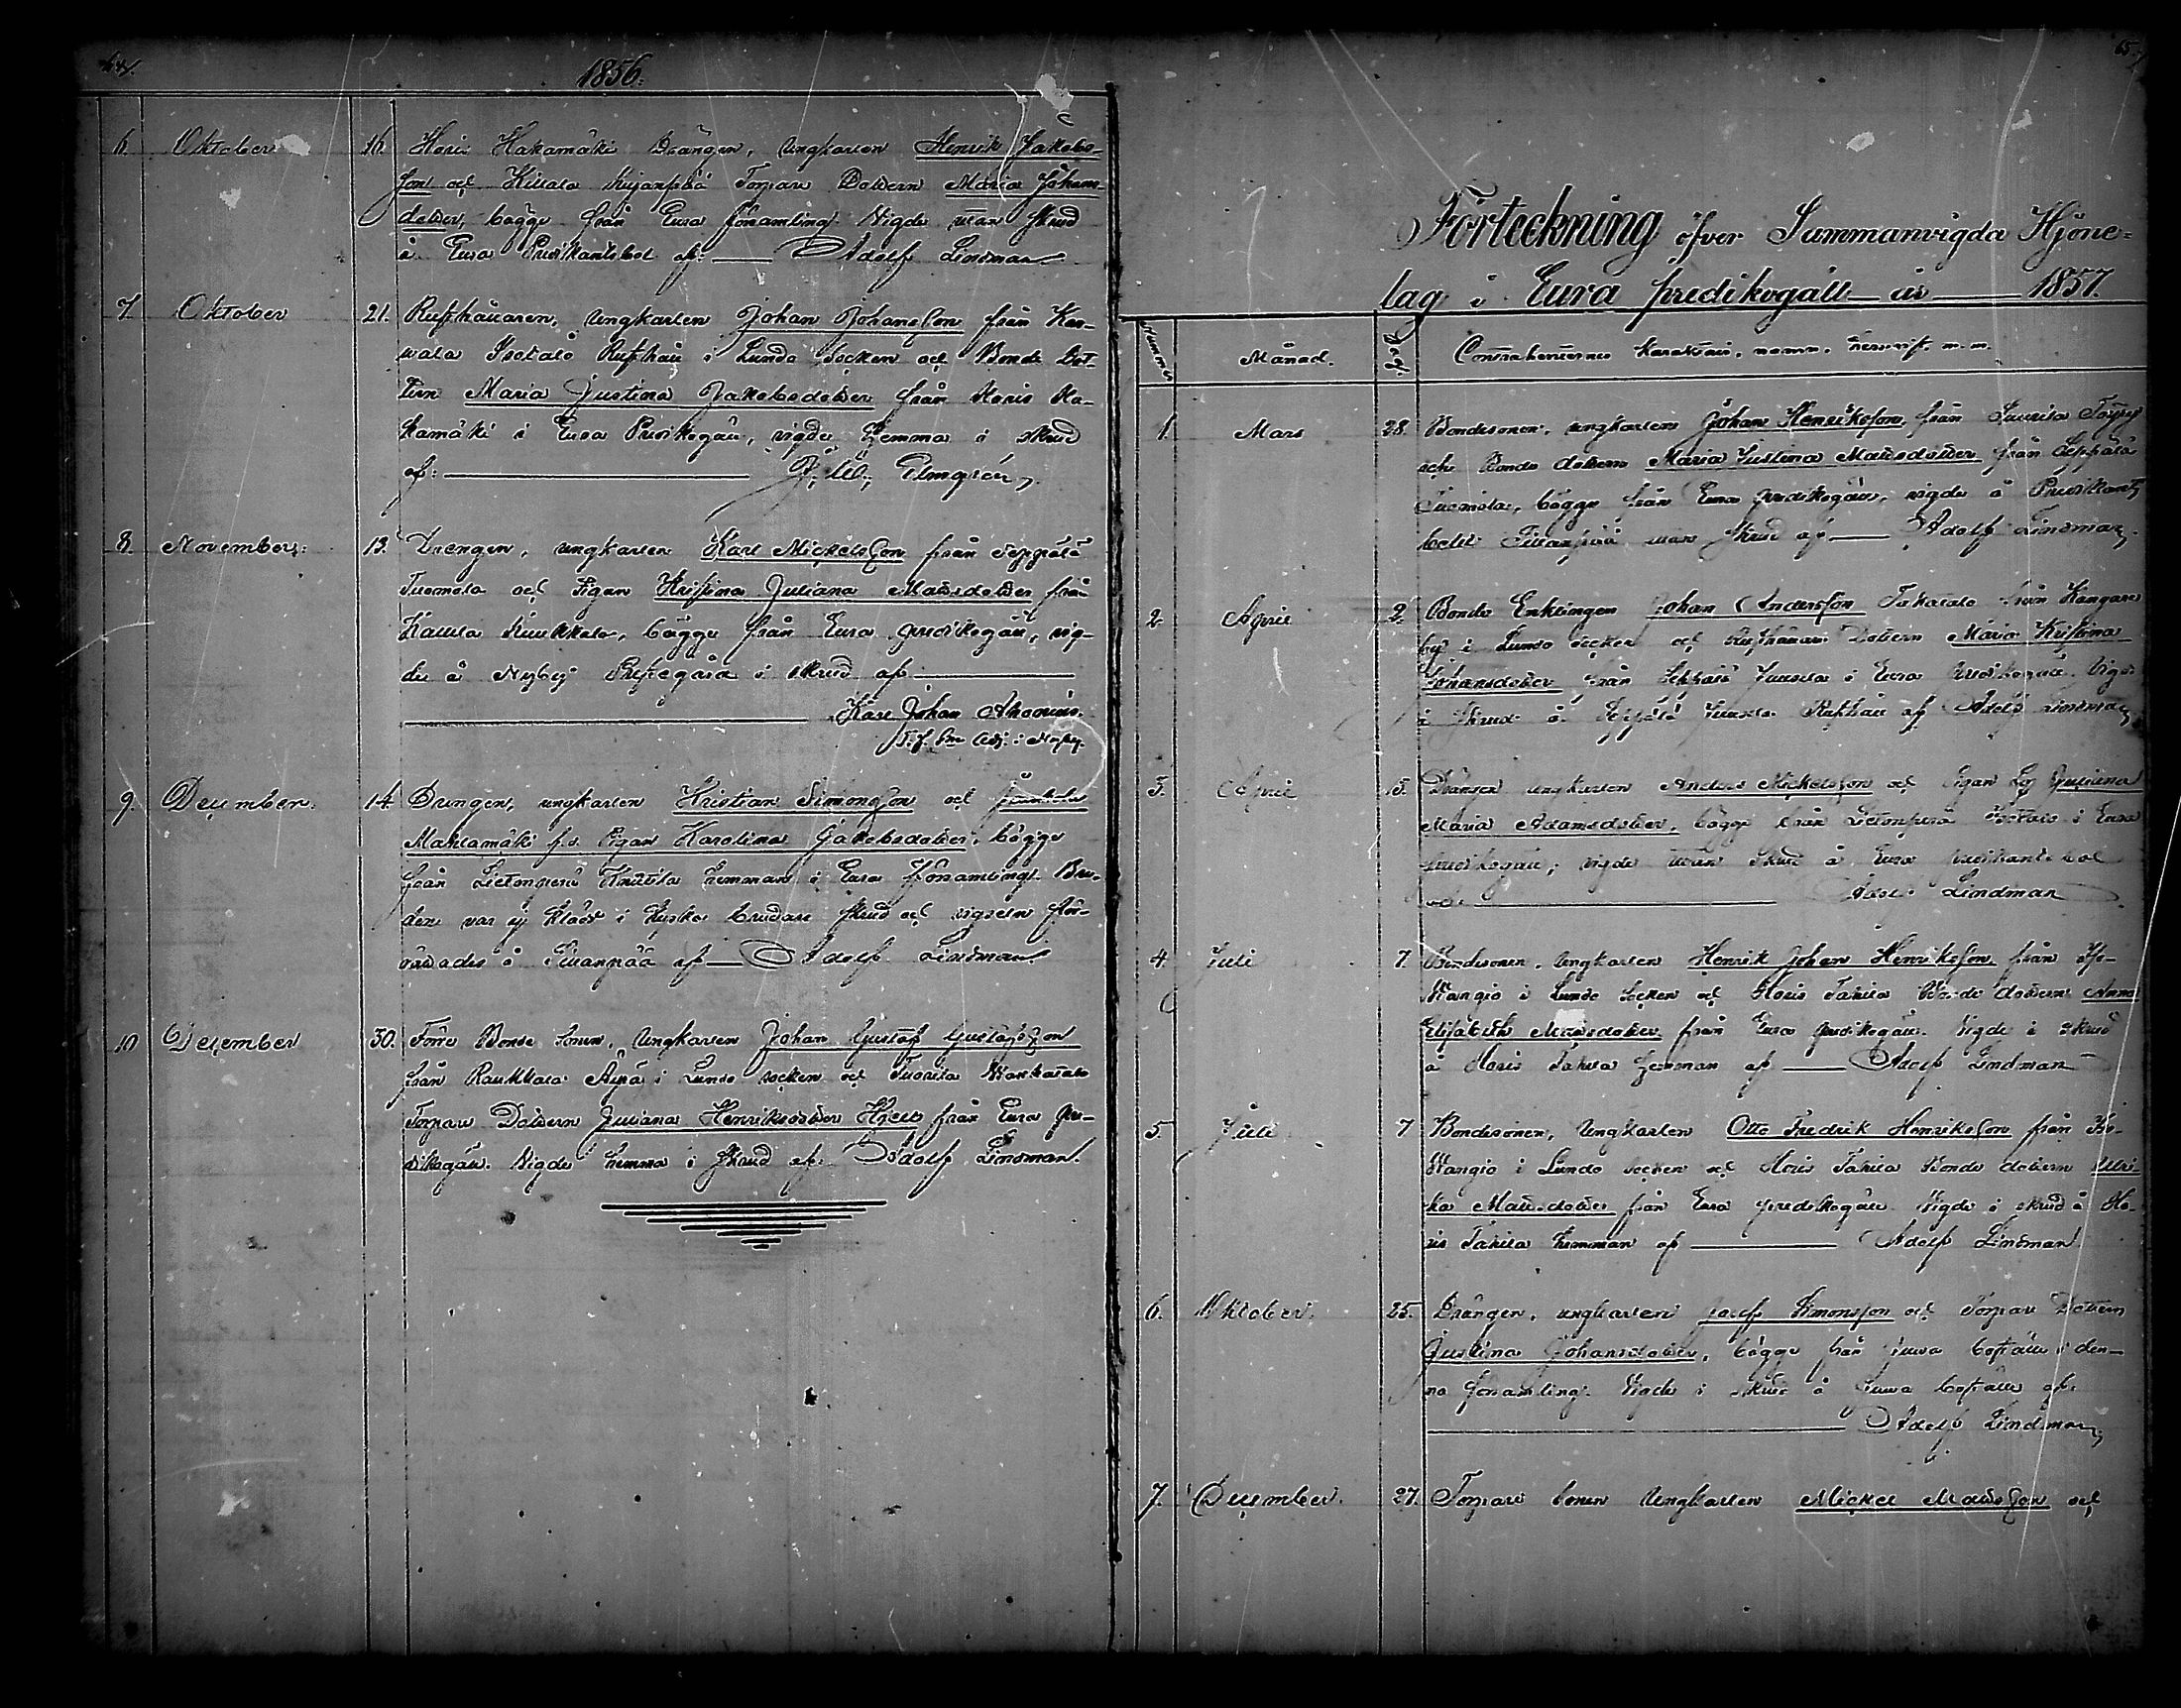 64.
1856.
6. Oktober 16. Horis Hakamäki Drängen, Ungkarlen Henrik Jakobs-
son och Kittala Torpare Dottern Maria Johans-
dotter, bägge från Eura församling. Vigde utan skrud
å Eura Predikantsbol af: Adolf Lindman
7. Oktober 21. Rusthållaren, Ungkarlen Johan Johansson från Kar-
vala Isotalo Rusthåll i Lundo Socken och Bonde Dot-
tern Maria Justina Jakobsdotter från Horis Ha-
kamäki i Eura Predikogäll, vigde hemma i skrud
af: Elmgrén
8. November: 13. Drengen, ungkarlen Karl Mickelsson från Seppälä
Tuomola och Pigan Kristina Juliana Mattsdotter från
Kaulla, bägge från Eura predikogäll, vig-
de å Nyby Prestegård i skrud af
Karl Johan
T. f.
9. December. 14. Drengen, ungkarlen Kristian Simonsson och
Mahlamäki f.d. Pigan Karolina Jakobsdotter, bägge
från Lietonperä Knuutila hemman i Eura församling. Bru-
den var ej klädd i brudare skrud och vigseln för-
rättades å af Adolf Lindman
10 December 30. Förre Bonde Sonen, Ungkarlen Johan Gustaf Gustafsson
från Raukkala Äijälä i Lundo socken och
Torpare Dottern Juliana Henriksdotter från Eura Pre-
dikogäll. Vigde hemma i skrud af: Adolf Lindman.
65.
Förteckning öfver Sammanvigda Hjone-
lag i Eura predikogäll år 1857.
Nummer Månad. Dag. Contrahenternes karaktär, namn, hemvist, m. m.
1. Mars 28. Bondesonen, ungkarlen Johan Henriksson från Laurila
och Bonde dottern Maria Justina Mattsdotter från Seppälä
Tuomola, bägge från Eura predikogäll, vigde å Predikants
bolet utan skrud af Adolf Lindman.
2. April 2. Bonde Enklingen Johan Andersson från Kangare
by i Lundo socken och Rusthållare Dottern Maria Kristina
Johansdotter från Seppälä Juusela i Eura Predikogäll. Vigde
i skrud å Seppälä Juusela Rusthåll af Adolf Lindman
3. April 13. Drängen ungkarlen Anders Mickelsson och Pigan Juliana
Maria Adamsdotter, bägge från Lietonperä Isotalo i Eura
predikogäll, vigde utan skrud å Eura predikantsbol
af Adolf Lindman
4. Juli 7. Bondesonen, Ungkarlen Henrik Johan Henriksson från Iso-
Wangio i Lundo Socken och Horis Tahila Bonde dottern Anna
Elisabeth Mattsdotter från Eura predikogäll. Vigde i skrud
å Horis Tahila hemman af Adolf Lindman
5. Juli 7 Bondesonen, Ungkarlen Otto Fredrik Henriksson från Iso-
Wangio i Lundo socken och Horis Tahila Bonde dottern Ulri-
ka Mattsdotter från Eura predikogäll. Vigde i skrud å Ho-
ris Tahila hemman af Adolf Lindman
6. Oktober. 25. Drängen, ungkarlen Josef Simonsson och Torpare Dottern
Justina Johansdotter, bägge från Juva boställe i den-
na församling. Vigde i skrud å Juva boställe af.
Adolf Lindman
7. December. 27. Torpare sonen Ungkarlen Mickel Mattsson och